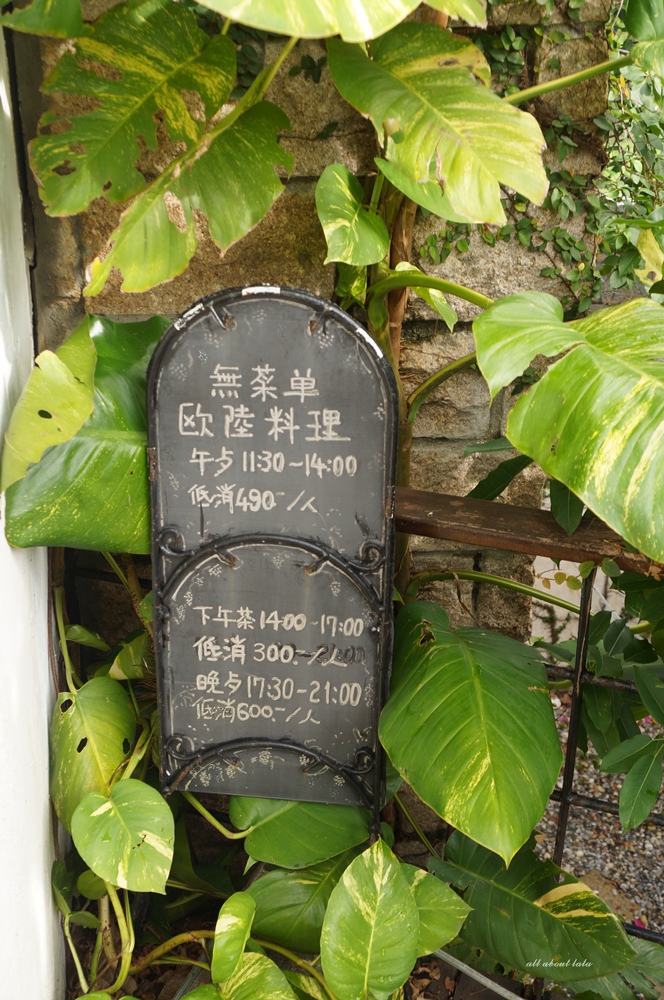 無菜单
欧陸料理
午夕 11:30~14:00
低消490-/人
下午茶14:00~17:00
低消 300-/人
晚夕17:30-21:00
低消600-/人
all about lala